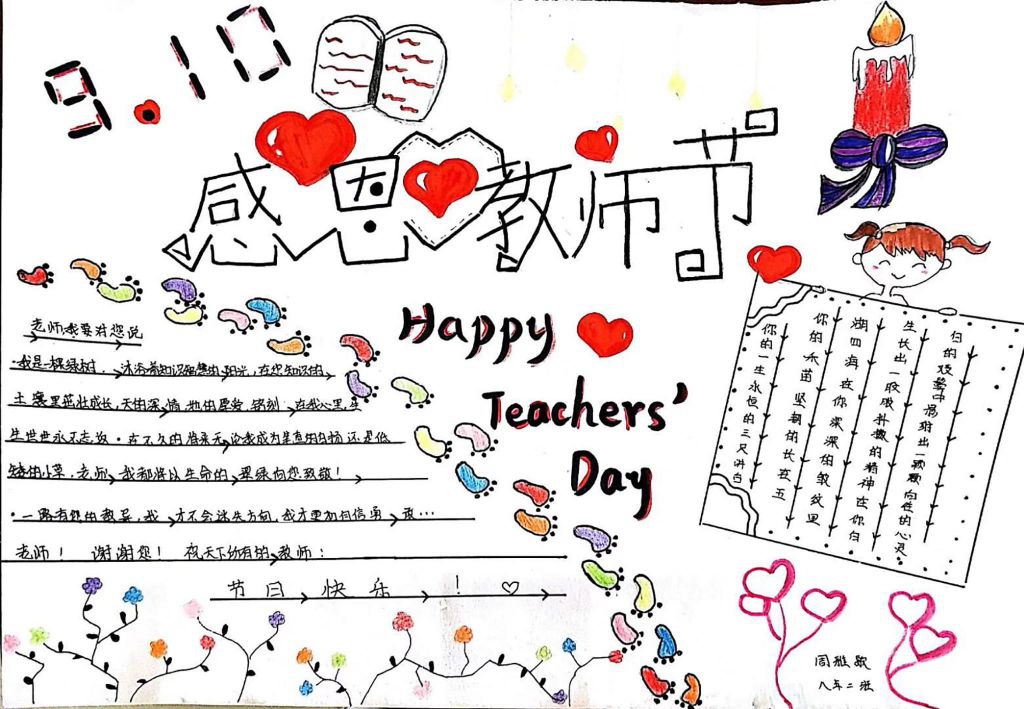 9.10
感恩教师节
Happy
Teachers'
Day
老师,我要对您说
·我是一棵绿树.沐浴着知识智慧的阳光,在您知识的
土壤里茁壮成长,天的深情,地的厚爱,铭刻在我心里,生
生世世永不忘.在不久的将来,无论我成为笔直的白杨还是低
矮的小草,老师,我都将以生命的翠绿向您致敬!
·一路有您的教导,我才不会迷失方向,我才更加有信勇敢…
老师!谢谢您!祝天下所有的教师:
节日快乐!
归的枝繁中 出一颗颗向往的心灵
生长出一 的精神在你身
湖四海在你深深的教 里
你的禾苗 的长在五
你的一生永恒的三尺讲台
周雅
八年二班